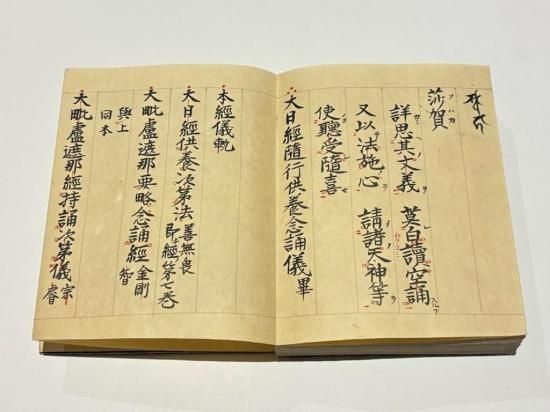 莎賀
詳思其文義 莫白讀空誦
又以法施心 請諸天神等
使聽受隨喜
大日經隨行供養念誦儀畢
本經儀軌
大日經供養次第法 善無畏
即經第七卷
大毗盧遮那要略念誦經 金剛智
與上
同本
大毗盧遮那經持誦次第儀 宗睿